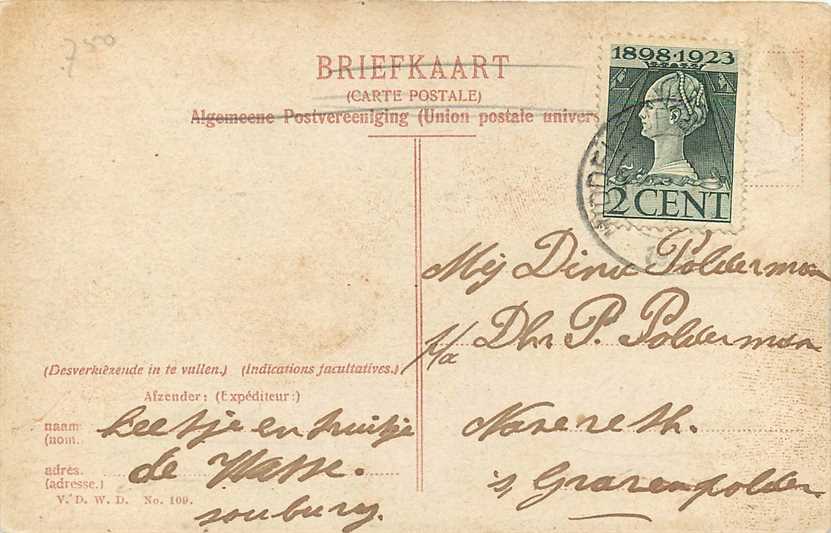 750
BRIEFKAART
(CARTE POSTALE)
Algemeene Postvereeniging (Union postale univers
1898·1923
2 CENT
MIDDEL
Mej Dina Polderman
p/a Dhr. P. Polderman
Nazareth.
's Gravenpolder
(Desverkiezende in te vullen.) (Indications facultatives.)
Afzender: (Expéditeur:)
naam (nom. Leetje en
adres. (adresse.) de
Souburg.
V. D. W. D. No. 109.